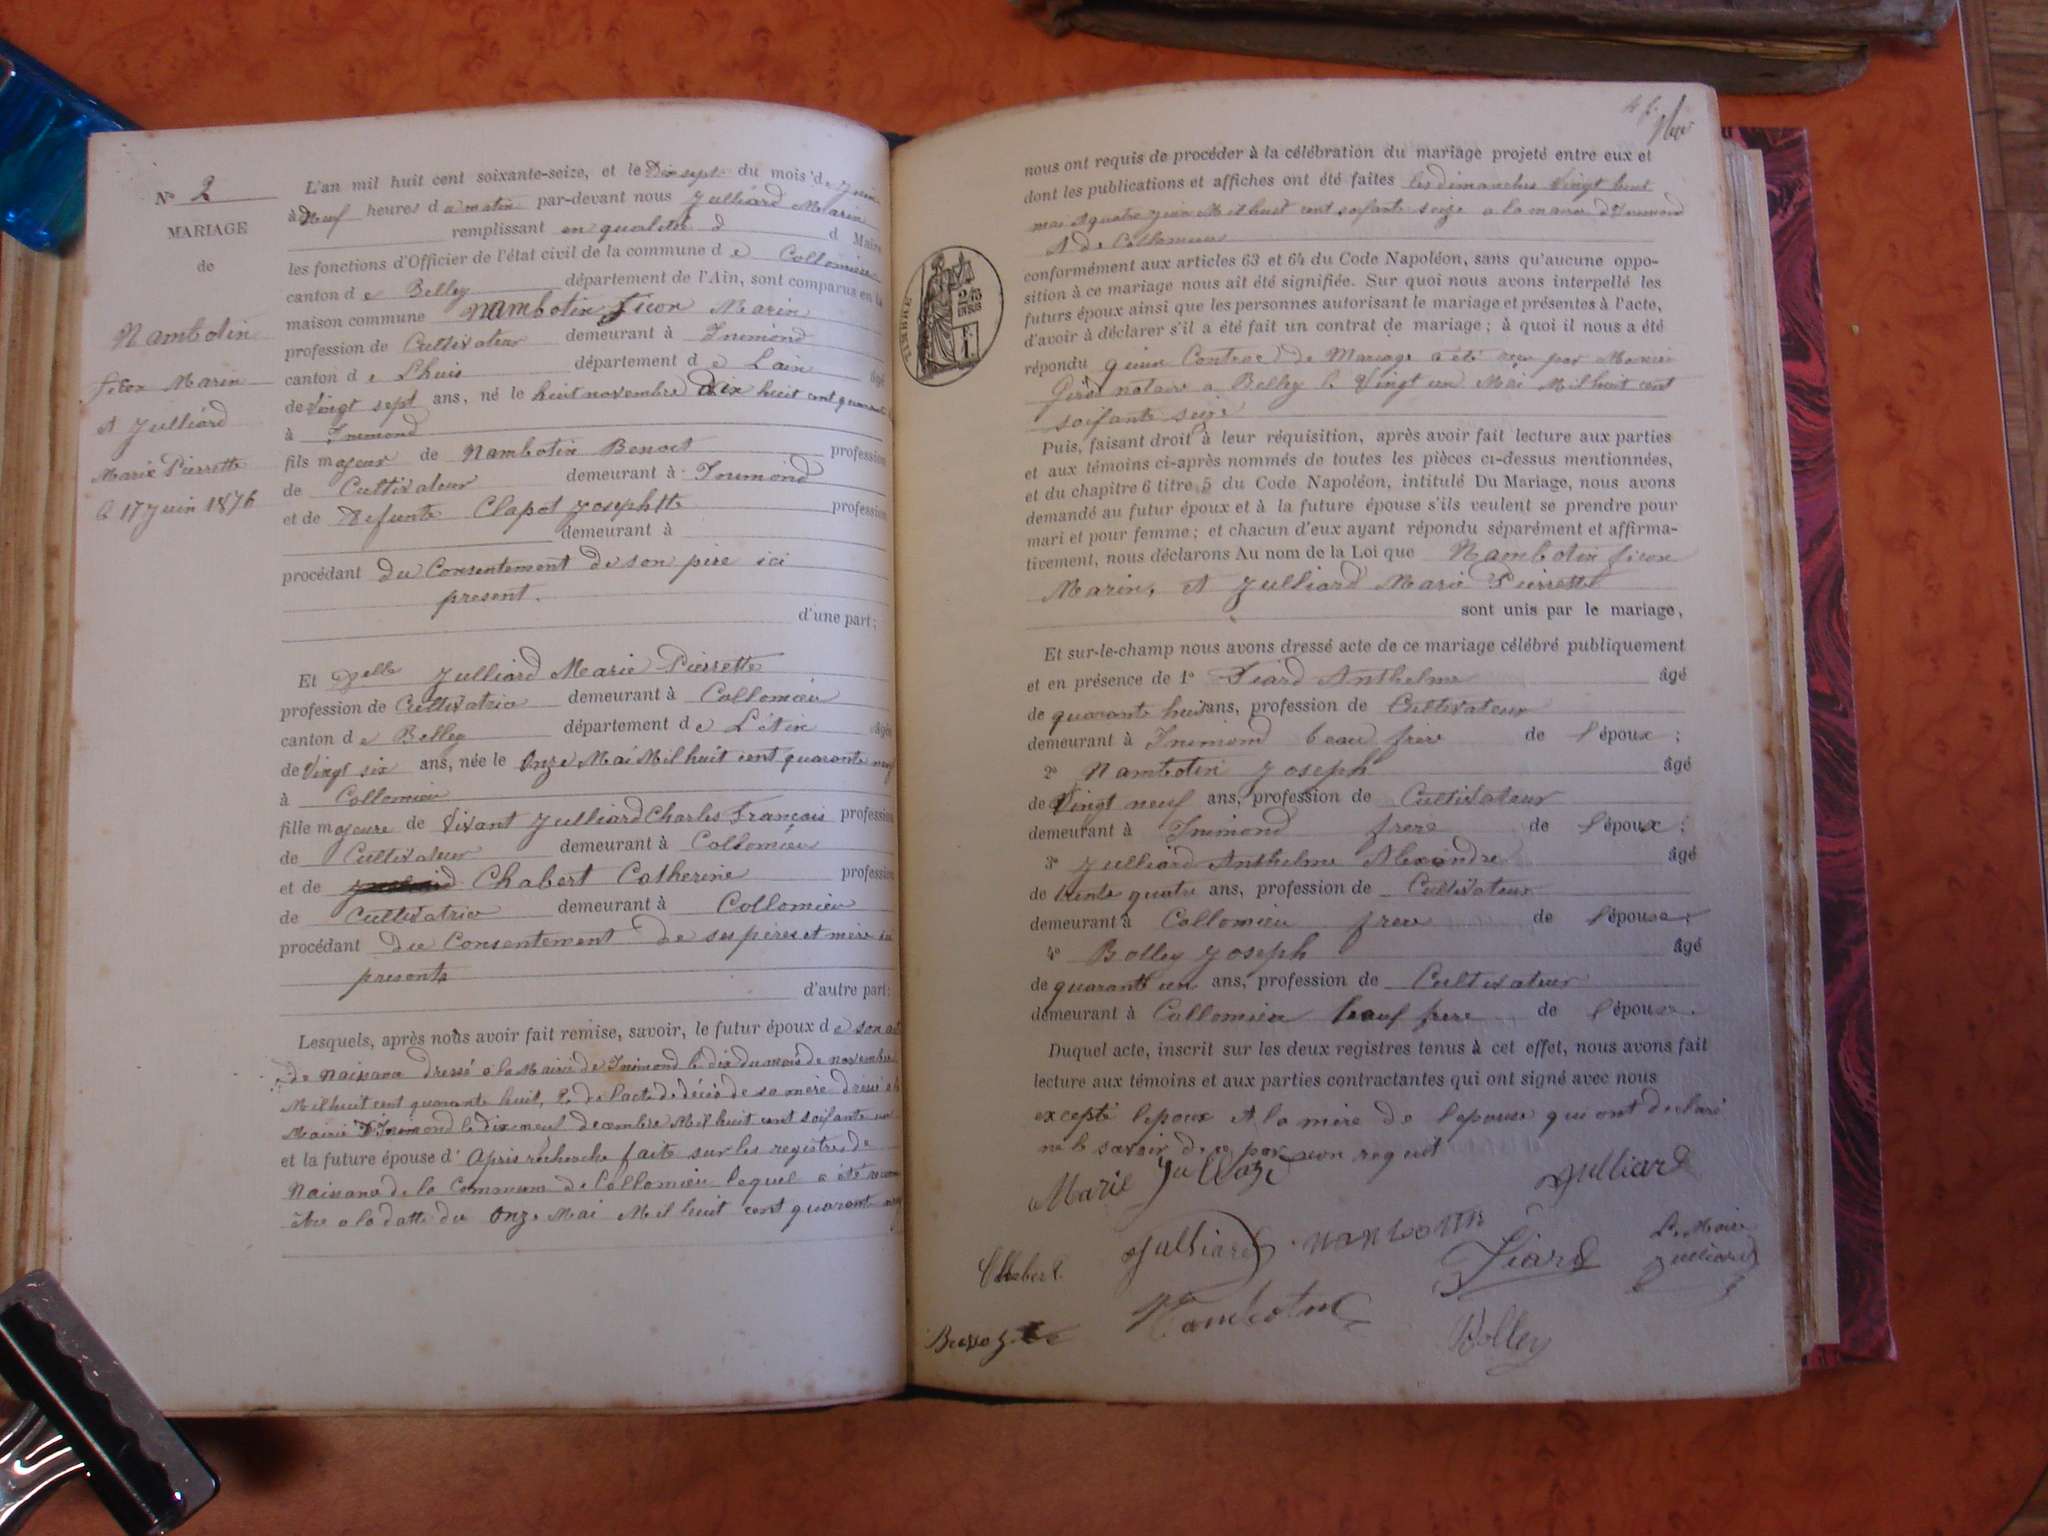 N° 2
MARIAGE
de
Nambotin
ficon Marin
et Julliard
Marie Pierrette
le 17 Juin 1876
L'an mil huit cent soixante-seize, et le Dix sept du mois de Juin
à Neuf heures d u matin par-devant nous Julliard Marin
remplissant en qualité d d Maire
les fonctions d'Officier de l'état civil de la commune d e Collomieu
canton d e Belley département de l'Ain, sont comparus en la
maison commune Nambotin ficon Marin
profession de Cultivateur demeurant à Inimond
canton d e Lhuis département d e Lain âgé
de Vingt sept ans, né le huit novembre Dix huit cent quarante
à Inimond
fils majeur de Nambotin Benoit profession
de Cultivateur demeurant à Inimond
et de Defunte Clapot Josephte profession
demeurant à
procédant du Consentement de son père ici
present.
d'une part;
Et Delle Julliard Marie Pierrette
profession de Cultivatrice demeurant à Collomieu
canton d e Belley département d e L'Ain âgée
de Vingt six ans, née le Onze Mai Mil huit cent quarante neuf
à Collomieu
fille majeure de Vivant Julliard Charles Francois profession
de Cultivateur demeurant à Collomieu
et de Chabert Catherine profession
de Cultivatrice demeurant à Collomieu
procédant du Consentement de ses pères et mère ici
presents
d'autre part;
Lesquels, après nous avoir fait remise, savoir, le futur époux d e son acte
de naissance dressé a la Mairie de Inimond le dix du mois de novembre
Mil huit cent quarante huit, 2. de lacte de décès de sa mère dressé a la
Mairie D'Inimond le dix neuf decembre Mil huit cent soifante un
et la future épouse d' Apris recherche faite sur les registres de
Naissance de la Commune de Collomieu lequel a été reconnu
être a la datte du Onze Mai Mil huit cent quarante neuf
nous ont requis de procéder à la célébration du mariage projeté entre eux et
dont les publications et affiches ont été faites les dimanches Vingt huit
mai et quatre Juin Mil huit cent soifante seize a la mairie d'Inimond
et de Collomieu
TIMBRE
2/10
EN SUS
1 F.
conformément aux articles 63 et 64 du Code Napoléon, sans qu'aucune oppo-
sition à ce mariage nous ait été signifiée. Sur quoi nous avons interpellé les
futurs époux ainsi que les personnes autorisant le mariage et présentes à l'acte,
d'avoir à déclarer s'il a été fait un contrat de mariage; à quoi il nous a été
répondu quun Contrac de Mariage a été reçu par
notaire a Belley le Vingt un Mai Mil huit cent
soifante seize
Puis, faisant droit à leur réquisition, après avoir fait lecture aux parties
et aux témoins ci-après nommés de toutes les pièces ci-dessus mentionnées,
et du chapitre 6 titre 5 du Code Napoléon, intitulé Du Mariage, nous avons
demandé au futur époux et à la future épouse s'ils veulent se prendre pour
mari et pour femme; et chacun d'eux ayant répondu séparément et affirma-
tivement, nous déclarons Au nom de la Loi que Nambotin ficon
Marin, et Julliard Marie Pierrette
sont unis par le mariage,
Et sur-le-champ nous avons dressé acte de ce mariage célébré publiquement
et en présence de 1° Fiard Anthelme âgé
de quarante huit ans, profession de Cultivateur
demeurant à Inimond beau frere de l'époux;
2° Nambotin Joseph âgé
de Vingt neuf ans, profession de Cultivateur
demeurant à Inimond frere de l'époux;
3° Julliard Anthelme Alexandre âgé
de trente quatre ans, profession de Cultivateur
demeurant à Collomieu frere de l'épouse;
4° Bolley Joseph âgé
de quarante un ans, profession de Cultivateur
demeurant à Collomieu beauf frere de l'épouse.
Duquel acte, inscrit sur les deux registres tenus à cet effet, nous avons fait
lecture aux témoins et aux parties contractantes qui ont signé avec nous
excepté lepoux et la mère de lepouse qui ont declaré
ne le savoir de ce par nous requit
Marie Julliard
Julliard
Julliard
nanbotin
Fiard
Le Maire
Julliard
Chabert
Nambotin
Bolley